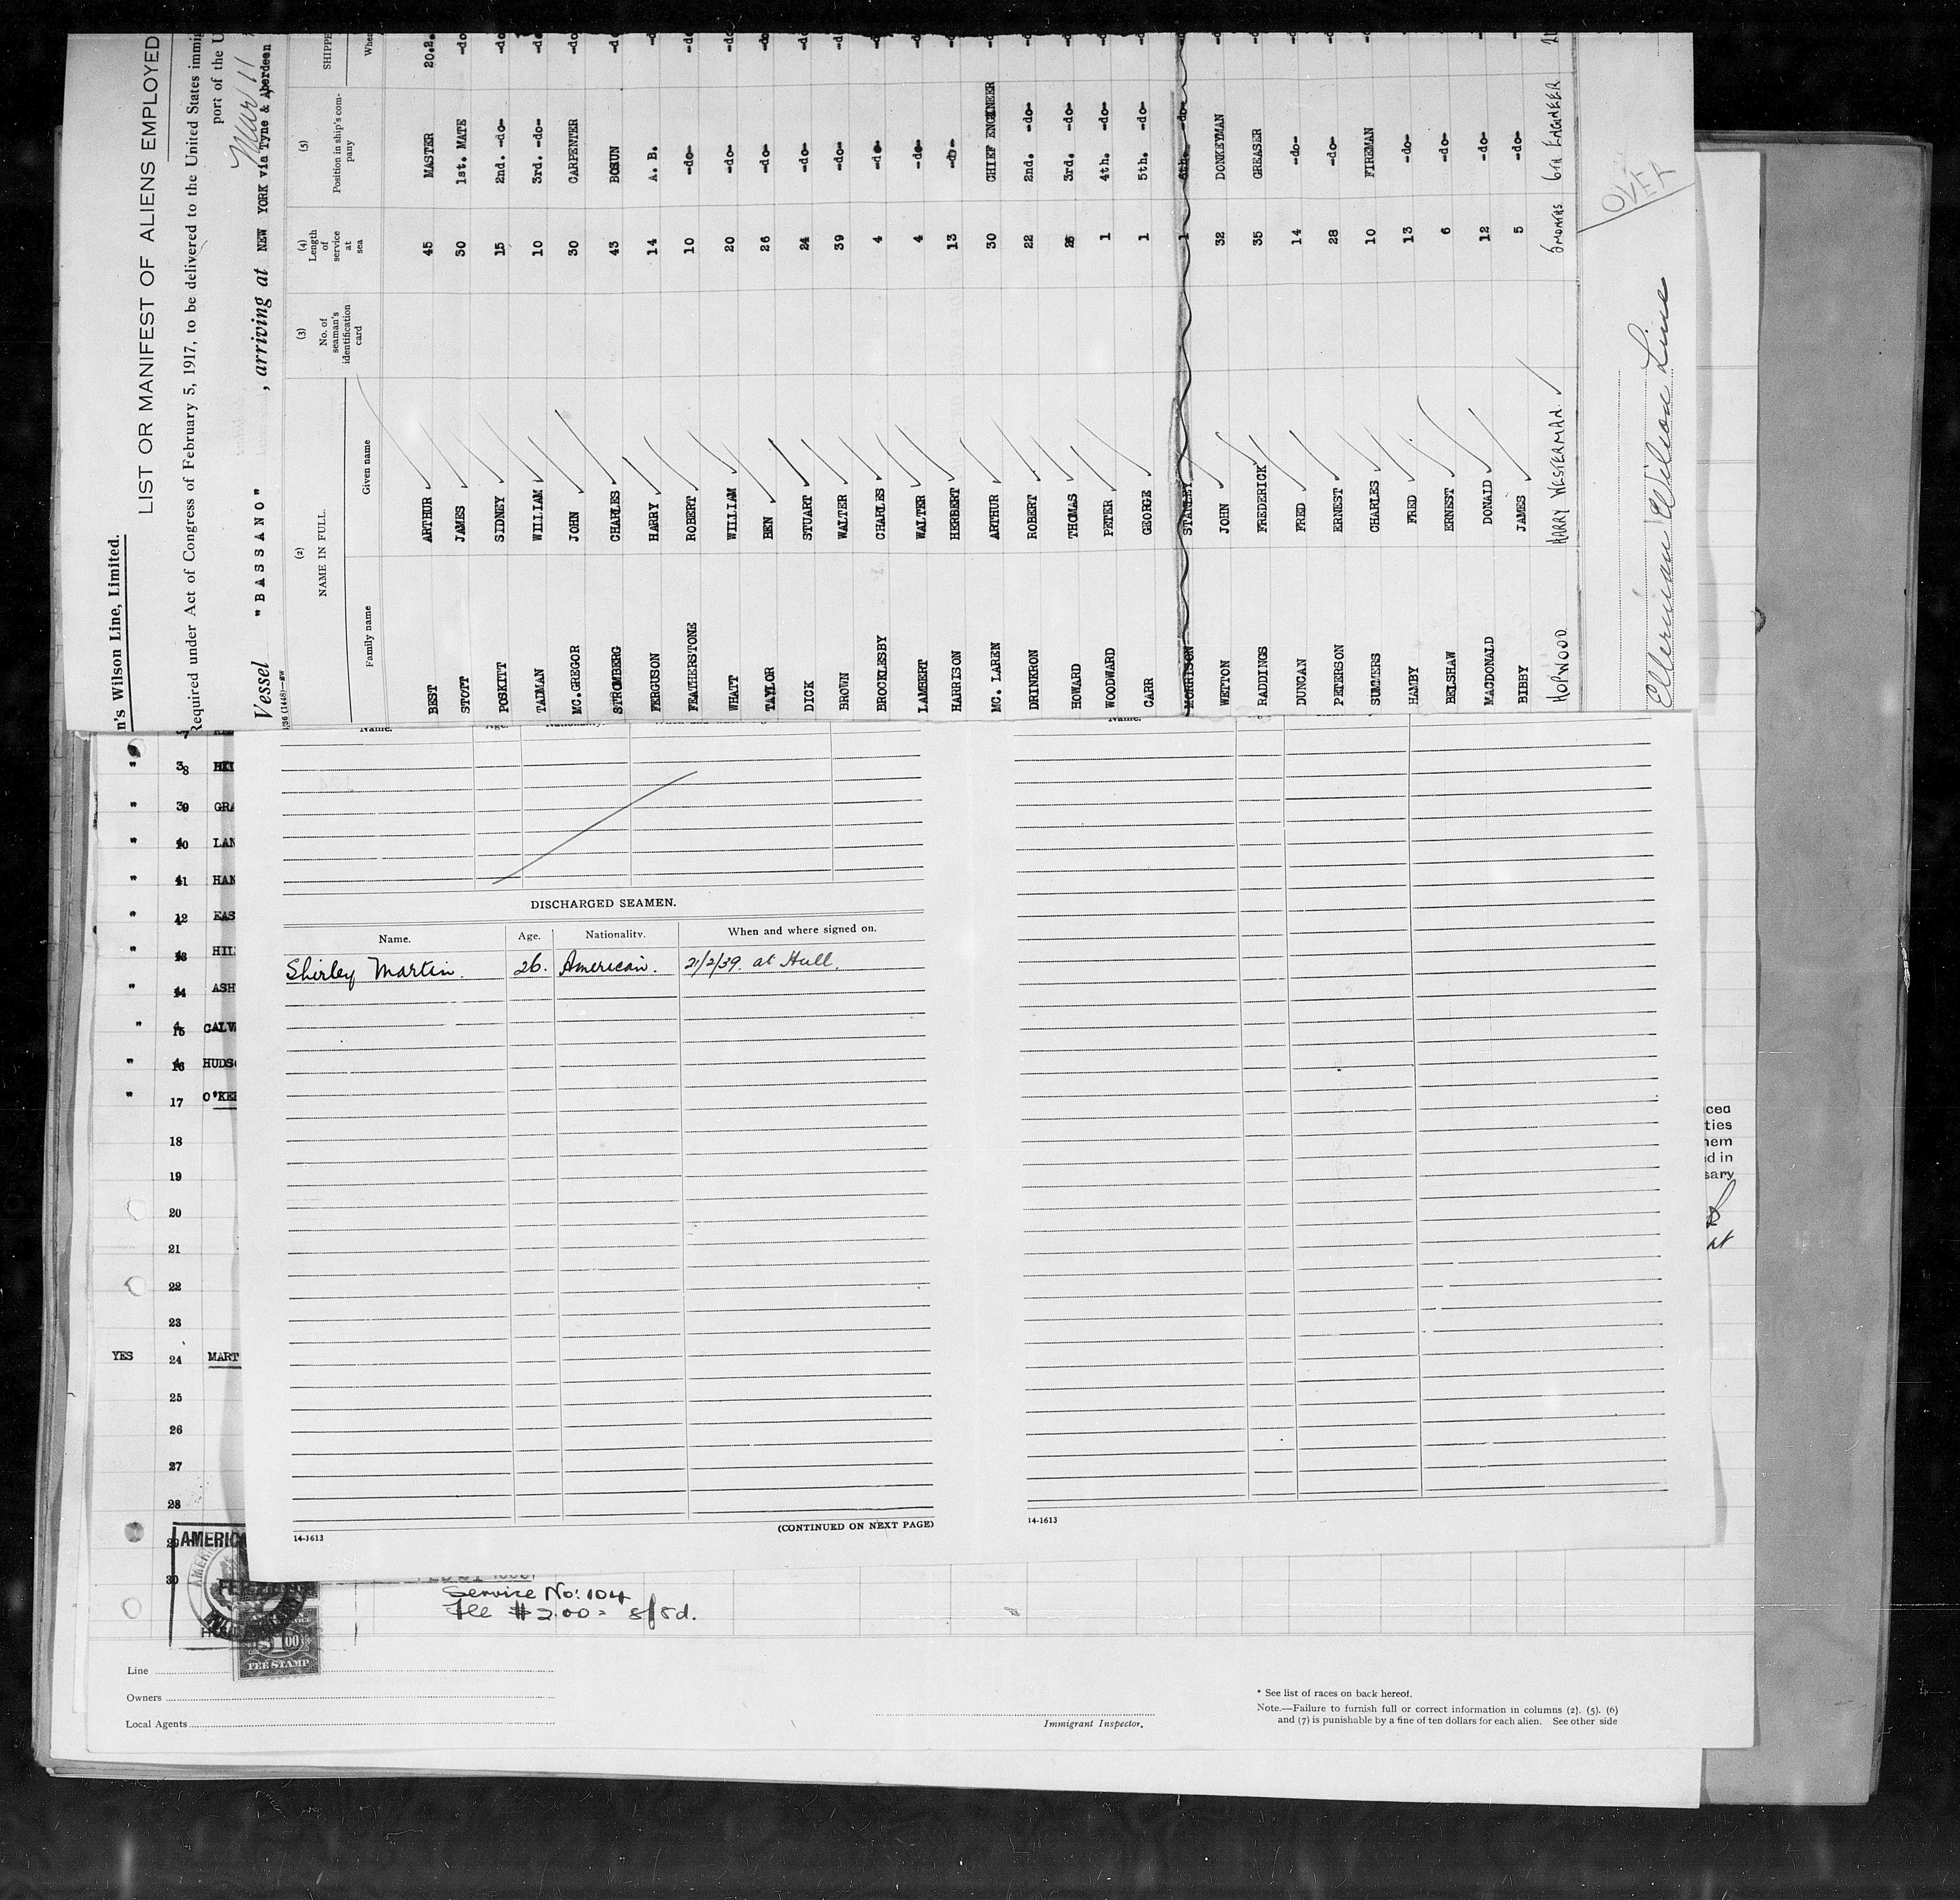 n's Wilson Line, Limited.
LIST OR MANIFEST OF ALIENS EMPLOYED
Required under Act of Congress of February 5, 1917, to be delivered to the United States immig
port of the U
Mar 11
Vessel "BASSANO", arriving at NEW YORK via Tyne & Aberdeen
(2) (3) (4) (5)
NAME IN FULL. No. of seaman's identification card Length of service at sea Position in ship's company SHIPPE
Family name Given name When
BEST ARTHUR 45 MASTER 20.2.
STOTT JAMES 30 1st. MATE -do
POSKITT SIDNEY 15 2nd. -do- -do
TADMAN WILLIAM 10 3rd. -do- -do
MC.GREGOR JOHN 30 CARPENTER -do
STROMBERG CHARLES 43 BOSUN -d
FERGUSON HARRY 14 A. B. -d
FEATHERSTONE ROBERT 10 -do- -do
WHATT WILLIAM 20 -do- -do
TAYLOR BEN 26 -do- -do
DICK STUART 24 -do- -do
BROWN WALTER 39 -do- -do
BROCKLESBY CHARLES 4 -do- -d
LAMBERT WALTER 4 -do- -d
HARRISON HERBERT 13 -do- -d
MC. LAREN ARTHUR 30 CHIEF ENGINEER -d
DRINKRON ROBERT 22 2nd. -do- -do
HOWARD THOMAS 25 3rd. -do- -do
WOODWARD PETER 1 4th. -do- -d
CARR GEORGE 1 5th. -do- -d
MORRISON STANLEY 1 6th. -do-
WETTON JOHN 32 DONKEYMAN -d
RADDINGS FREDERICK 35 GREASER -d
DUNCAN FRED 14 -do- -d
PETERSON ERNEST 28 -do- -d
SUMMERS CHARLES 10 FIREMAN -d
HAMBY FRED 13 -do- -d
BELSHAW ERNEST 6 -do- -d
MACDONALD DONALD 12 -do-
BIBBY JAMES 5 -do-
HOPWOOD HARRY WESTERMAN. 6 MONTHS 6TH ENGINEER 21
OVER
Ellerman Wilson Line
Name. Age. Nationality.
Name.
DISCHARGED SEAMEN.
Name. Age. Nationality. When and where signed on.
Shirley Martin. 26. American. 21/2/39. at Hull.
14-1613 (CONTINUED ON NEXT PAGE)
14-1613
" 38
" 39 GRA
" 10 LAN
" 11 HAN
" 12 EAS
" 13 HIL
" 14 ASH
" 15 CALV
" 16 HUDS
" 17 O'KE
18
19
20
21
22
23
YES 24 MART
25
26
27
28
29
30
AMERIC
$1.00
FEE STAMP
Service No: 104
Fee $2.00 = 8/5d.
ced
ties
hem
d in
sary
Line
Owners
Local Agents
Immigrant Inspector.
* See list of races on back hereof.
Note.—Failure to furnish full or correct information in columns (2). (5). (6)
and (7) is punishable by a fine of ten dollars for each alien. See other side